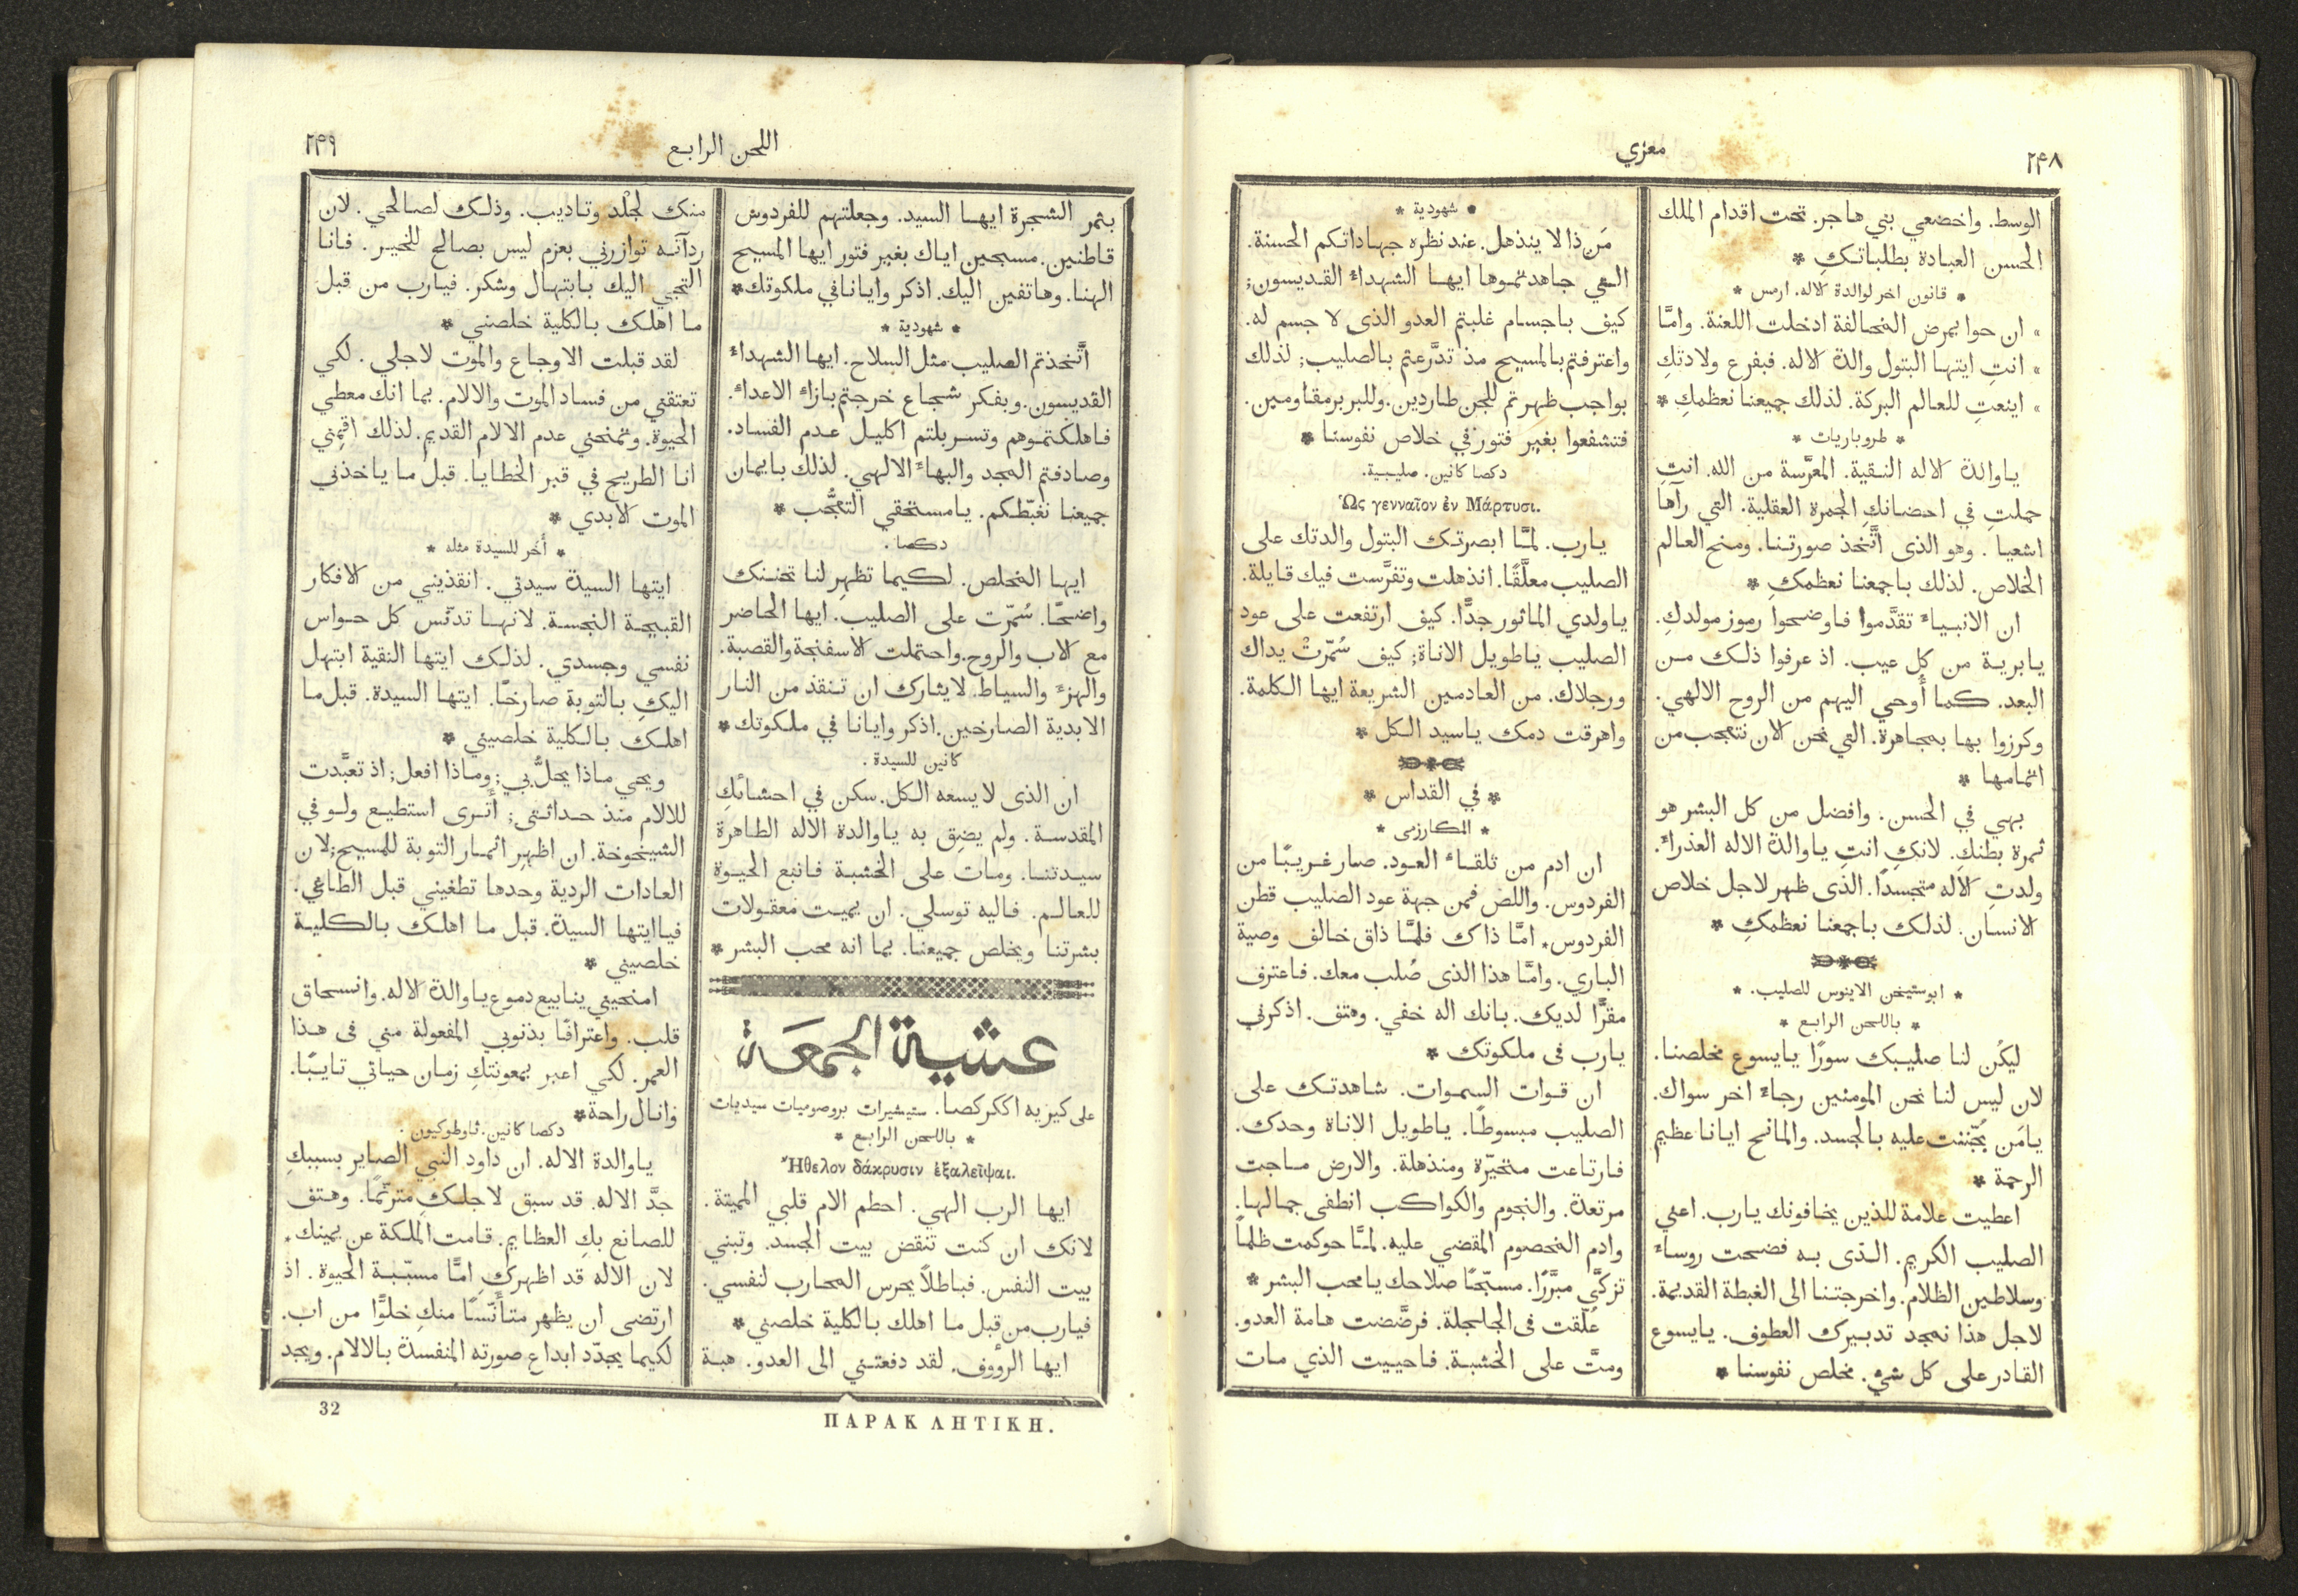 ٢٤٨
معزي
الوسط. واخضعي بني هاجر. تحت اقدام الملك
الحسن العبادة بطلباتكِ *
* قانون اخر لوالدة الاله. ارمس *
» ان حوا بمرض المخالفة ادخلت اللعنة. وامَّا
» انتِ ايتها البتول والدة الاله. فبفرع ولادتكِ
» اينعتِ للعالم البركة. لذلك جميعنا نعظمكِ *
* طروباريات *
ياوالدة الاله النقية. المعرَّسة من الله. انتِ
حملتِ في احضانكِ الجمرة العقلية. التي رآها
اشعيا. وهو الذى اتَّخذ صورتنا. ومنح العالم
الخلاص. لذلك باجمعنا نعظمكِ *
ان الانبياءَ تقدَّموا فاوضحوا رموز مولدكِ.
يابرية من كل عيب. اذ عرفوا ذلك من
البعد. كما أُوحي اليهم من الروح الالهي.
وكرزوا بها بمجاهرة. التي نحن الان نتعجب من
اتمامها *
بهي في الحسن. وافضل من كل البشر هو
ثمرة بطنك. لانكِ انتِ ياوالدة الاله العذراءَ.
ولدتِ الاله متجسدًا. الذى ظهر لاجل خلاص
الانسان. لذلك باجمعنا نعظمكِ *
* ابوستيخن الاينوس للصليب. *
* باللحن الرابع *
ليكُن لنا صليبك سورًا يايسوع مخلصنا.
لان ليس لنا نحن المومنين رجاءَ اخر سواك.
يامَن بُجّنفت عليه بالجسد. والمانح ايانا عظيم
الرحمة *
اعطيت علامة للذين يخافونك يارب. اعني
الصليب الكريم. الذى به فضحت روساءَ
وسلاطين الظلام. واخرجتنا الى الغبطة القديمة.
لاجل هذا نمجد تدبيرك العطوف. يايسوع
القادر على كل شيءٍ. مخلص نفوسنا *
* شهودية *
مَن ذا لا ينذهل. عند نظره جهاداتكم الحسنة.
التي جاهدتموها ايها الشهداءَ القديسون;
كيف باجسام غلبتم العدو الذى لا جسم له.
واعترفتم بالمسيح مذ تدرَّعتم بالصليب; لذلك
بواجب ظهرتم للجن طاردين. وللبربر مقاومين.
فتشفعوا بغير فتور في خلاص نفوسنا *
دكصا كانين. صليبية.
Ὡς γενναῖον ἐν Μάρτυσι.
يارب. لمَّا ابصرتك البتول والدتك على
الصليب معلَّقًا. انذهلت وتفرَّست فيك قايلة.
ياولدي الماثور جدًّا. كيف ارتفعت على عود
الصليب ياطويل الاناة; كيف سُمّرتْ يداك
ورجلاك. من العادمين الشريعة ايها الكلمة.
واهرقت دمك ياسيد الكل *
* في القداس *
* المكارزمى *
ان ادم من تلقاءَ العود. صار غريبًا من
الفردوس. واللص فمن جهة عود الصليب قطن
الفردوس. امَّا ذاك فلمَّا ذاق خالف وصية
الباري. وامَّا هذا الذى صُلب معك. فاعترف
مقرًّا لديك. بانك اله خفي. وهتف. اذكرني
يارب فى ملكوتك *
ان قوات السموات. شاهدتك على
الصليب مبسوطًا. ياطويل الاناة وحدك.
فارتاعت متحيّرة ومنذهلة. والارض ماجت
مرتعدة. والنجوم والكواكب انطفى جمالها.
وادم المخصوم المقضي عليه. لمَّا حوكمت ظلمًا
تزكَّى مبرَّرًا. مسبّحًا صلاحك يامحب البشر *
عُلّقت فى الجلجلة. فرضَّضت هامة العدو.
ومتَّ على الخشبة. فاحييت الذي مات
اللحن الرابع
٢٤٩
بثمر الشجرة ايها السيد. وجعلتهم للفردوش
قاطنين. مسبحين اياك بغير فتور ايها المسيح
الهنا. وهاتفين اليك. اذكر وايانا في ملكوتك *
* شهودية *
اتَّخذتم الصليب مثل السلاح. ايها الشهداءَ
القديسون. وبفكر شجاع خرجتم بازاءَ الاعداءَ.
فاهلكتموهم وتسربلتم اكليل عدم الفساد.
وصادفتم المجد والبهاءَ الالهي. لذلك بايمان
جميعنا نغبّطكم. يامستحقي التعجُّب *
دكصا.
ايها المخلص. لكيما تظهر لنا تحننك
واضحًا. سُمّرت على الصليب. ايها الحاضر
مع الاب والروح. واحتملت الاسفنجة والقصبة.
والهزءَ والسياط. لايثارك ان تنقذ من النار
الابدية الصارخين. اذكر وايانا في ملكوتك *
كانين للسيدة.
ان الذى لا يسعه الكل. سكن في احشائكِ
المقدسة. ولم يضِق به ياوالدة الاله الطاهرة
سيدتنا. ومات على الخشبة فانبع الحيوة
للعالم. فاليه توسلي. ان يميت معقولات
بشرتنا ويخلص جميعنا. بما انه محب البشر *
عشية الجمعة
على كيريه اككركصا. ستيشيرات بروصوميات سيديات
* باللحن الرابع *
Ἤθελον δάκρυσιν ἐξαλεῖψαι.
ايها الرب الهي. احطم الام قلبي المميتة.
لانك ان كنت تنقض بيت الجسد. وتبني
بيت النفس. فباطلاً يحرس المحارب لنفسي.
فيارب من قبل ما اهلك بالكلية خلصني *
ايها الرؤوف. لقد دفعتني الى العدو. هبة
منك لجلْد وتاديب. وذلك لصالحي. لان
ردآتَه توازرني بعزم ليس بصالح للخير. فانا
التجي اليك بابتهال وشكر. فيارب من قبل
ما اهلك بالكلية خلصني *
لقد قبلت الاوجاع والموت لاجلي. لكي
تعتقني من فساد الموت والالام. بما انك معطي
الحيوة. وتمنحني عدم الالام القديم. لذلك اقِمني
انا الطريح في قبر الخطايا. قبل ما ياخذني
الموت الابدي *
* أُخر للسيدة مثله *
ايتها السيدة سيدتي. انقذيني من الافكار
القبيحة النجسة. لانها تدنّس كل حواس
نفسي وجسدي. لذلك ايتها النقية ابتهل
اليكِ بالتوبة صارخًا. ايتها السيدة. قبل ما
اهلك بالكلية خلصيني *
ويحي ماذا يحلُّ بي; وماذا افعل; اذ تعبَّدت
للالام منذ حداثتى; أترى استطيع ولو في
الشيخوخة. ان اظهر اثمار التوبة للمسيح; لان
العادات الردية وحدها تطغيني قبل الطاغي.
فياايتها السيدة. قبل ما اهلك بالكلية
خلصيني *
امنحيني ينابيع دموع ياوالدة الاله. وانسحاق
قلب. واعترافًا بذنوبي المفعولة مني فى هذا
العمر. لكي اعبر بمعونتكِ زمان حياتي تايبًا.
وانال راحة *
دكصا كانين. ثاوطوكيون.
ياوالدة الاله. ان داود النبي الصاير بسببكِ
جدَّ الاله. قد سبق لاجلكِ مترنّمًا. وهتف
للصانع بكِ العظايم. قامت الملكة عن يمينك.
لان الاله قد اظهركِ امًّا مسبّبة الحيوة. اذ
ارتضى ان يظهر متأنّسًا منكِ خلوًّا من اب.
لكيما يجدّد ابداع صورته المنفسدة بالالام. ويجد
ΠΑΡΑΚΛΗΤΙΚΗ.
32